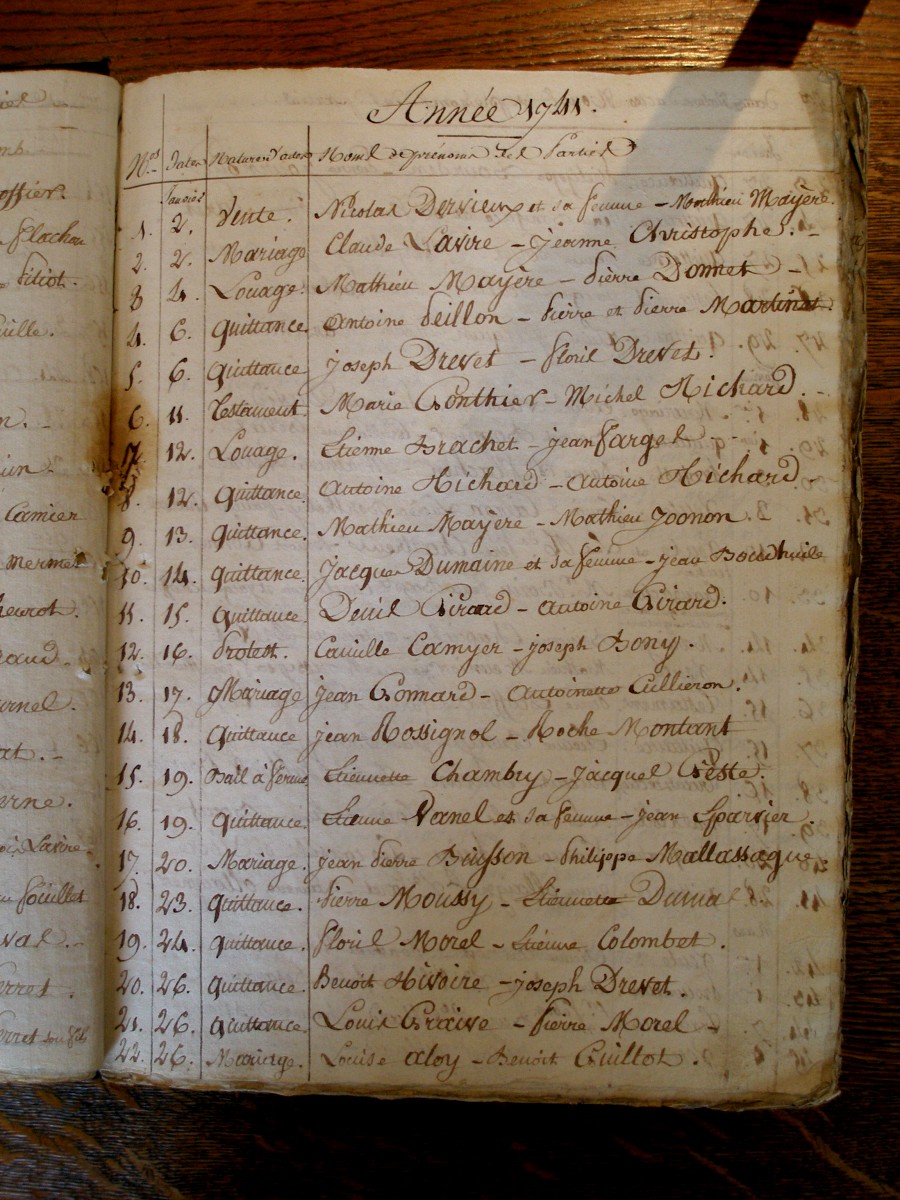 Année 1741.
Nos Dates Nature d'actes Noms et prénoms des Parties
Janvier
1. 2. Vente. Nicolas Dervieux et sa femme - Mathieu Mayère.
2. 2. Mariage Claude Lavire - Jeanne Christophe. -
3 4. Louage. Mathieu Mayère - Pierre Donnet -
4. 6. Quittance. Antoine Peillon - Pierre et Pierre Martinet.
5. 6. Quittance Joseph Drevet - Floris Drevet.
6. 11. Testament. Marie Gonthier - Michel Richard. -
7 12. Louage. Etienne Brachet - Jean Farges -
8. 12. Quittance. Antoine Richard - Antoine Richard -
9. 13. Quittance. Mathieu Mayère - Mathieu Joonon.
10. 14. Quittance. Jacques Dumaine et sa femme - Jean
11. 15. Quittance. Denis Girard - Antoine Girard.
12. 16. Protest. Camille Camyer - Joseph Bony.
13. 17. Mariage Jean Gonnard - Antoinette Cullieron.
14. 18. Quittance Jean Rossignol - Roche Montant
15. 19. Bail à ferme Etiennette Chambry - Jacques Peste.
16. 19. Quittance. Etienne Vanel et sa femme - Jean Eparvier.
17. 20. Mariage. Jean Pierre Buisson - Philippe Mallassagne.
18. 23. Quittance. Pierre Moussy - Etiennette Dumas
19. 24. Quittance. Floris Morel - Etienne Colombet.
20. 26. Quittance. Benoit Rivoire - Joseph Drevet.
21. 26. Quittance. Louis Graive - Pierre Morel -
22. 26. Mariage. Louise Aloy - Benoit Guillot.